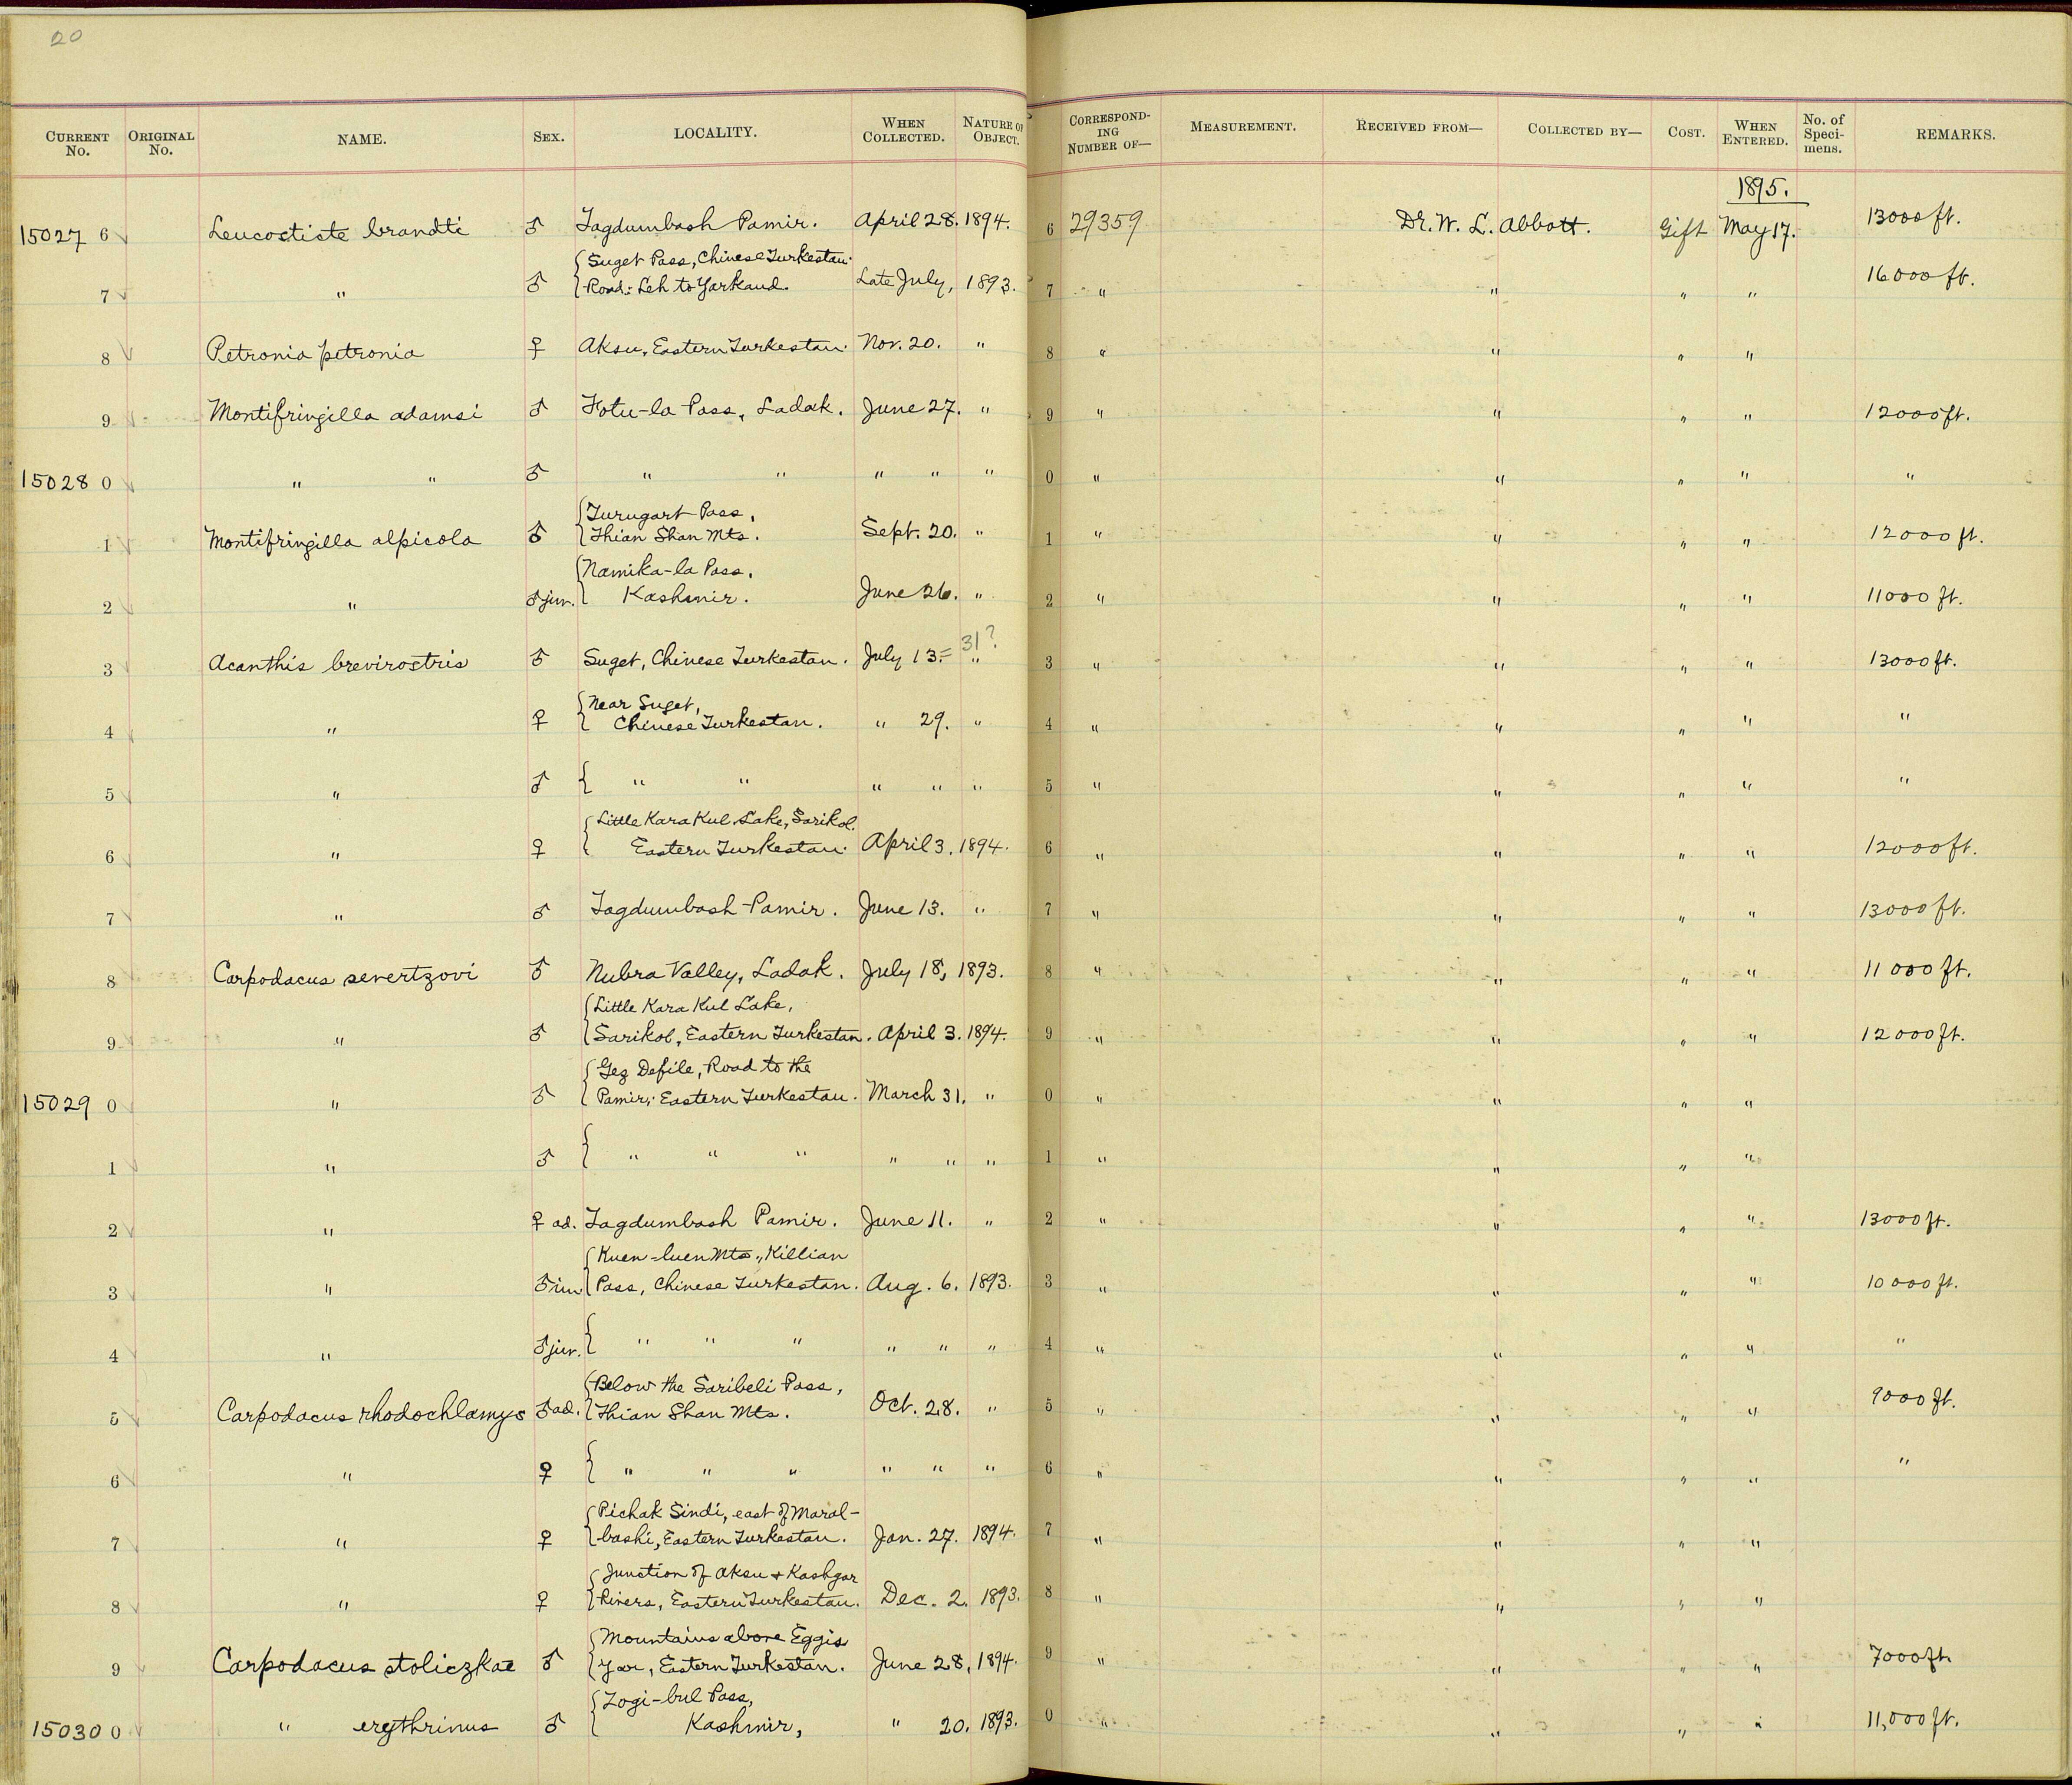 20
CURRENT No. ORIGINAL No. NAME. SEX. LOCALITY. WHEN COLLECTED. NATURE OF OBJECT. CORRESPONDING NUMBER OF— MEASUREMENT. RECEIVED FROM— COLLECTED BY— COST. WHEN ENTERED. No. of Specimens. REMARKS.
1895.
15027 6 Leucosticte brandti ♂ Tagdumbash Pamir. April 28. 1894. 6 29359 Dr. W. L. Abbott. Gift May 17. 13000 ft.
{Suget Pass, Chinese Turkestan.
7 " ♂ Road: Leh to Yarkand. Late July, 1893. 7 " " " " 16000 ft.
8 Petronia petronia ♀ Aksu, Eastern Turkestan. Nov. 20. " 8 " " " "
9 Montifringilla adamsi ♂ Fotu-la Pass, Ladak. June 27. " 9 " " " " 12000 ft.
15028 0 " " ♂ " " " " " 0 " " " " "
{Turugart Pass,
1 Montifringilla alpicola ♂ Thian Shan Mts. Sept. 20. " 1 " " " " 12000 ft.
{Namika-la Pass,
2 " ♂ juv. Kashmir. June 26. " 2 " " " " 11000 ft.
31?
3 Acanthis brevirostris ♂ Suget, Chinese Turkestan. July 13.= " 3 " " " " 13000 ft.
{Near Suget,
4 " ♀ Chinese Turkestan. " 29. " 4 " " " " "
5 " ♂ { " " " " " 5 " " " " "
{Little Kara Kul Lake, Sarikol.
6 " ♀ Eastern Turkestan. April 3. 1894. 6 " " " " 12000 ft.
7 " ♂ Tagdumbash Pamir. June 13. " 7 " " " " 13000 ft.
8 Carpodacus severtzovi ♂ Nubra Valley, Ladak. July 18, 1893. 8 " " " " 11000 ft.
{Little Kara Kul Lake,
9 " ♂ Sarikol, Eastern Turkestan. April 3. 1894. 9 " " " " 12000 ft.
{Gez Defile, Road to the
15029 0 " ♂ Pamir; Eastern Turkestan. March 31. " 0 " " " "
1 " ♂ { " " " " " " 1 " " " "
2 " ♀ ad. Tagdumbash Pamir. June 11. " 2 " " " " 13000 ft.
{Kuen-luen Mts., Killian
3 " ♂ im Pass, Chinese Turkestan. Aug. 6. 1893. 3 " " " " 10000 ft.
4 " ♂ juv. { " " " " " " 4 " " " " "
{Below the Saribeli Pass,
5 Carpodacus rhodochlamys ♂ ad. Thian Shan Mts. Oct. 28. " 5 " " " " 9000 ft.
6 " ♀ { " " " " " " 6 " " " " "
{Pichak Sindi, east of Maral-
7 " ♀ bashi, Eastern Turkestan. Jan. 27. 1894. 7 " " " "
{Junction of Aksu & Kashgar
8 " ♀ Rivers, Eastern Turkestan. Dec. 2. 1893. 8 " " " "
{Mountains above Eggis
9 Carpodacus stoliczkae ♂ Yar, Eastern Turkestan. June 28, 1894. 9 " " " " 7000 ft.
{Zogi-bul Pass,
15030 0 " erythrinus ♂ Kashmir, " 20. 1893. 0 " " " " 11,000 ft.